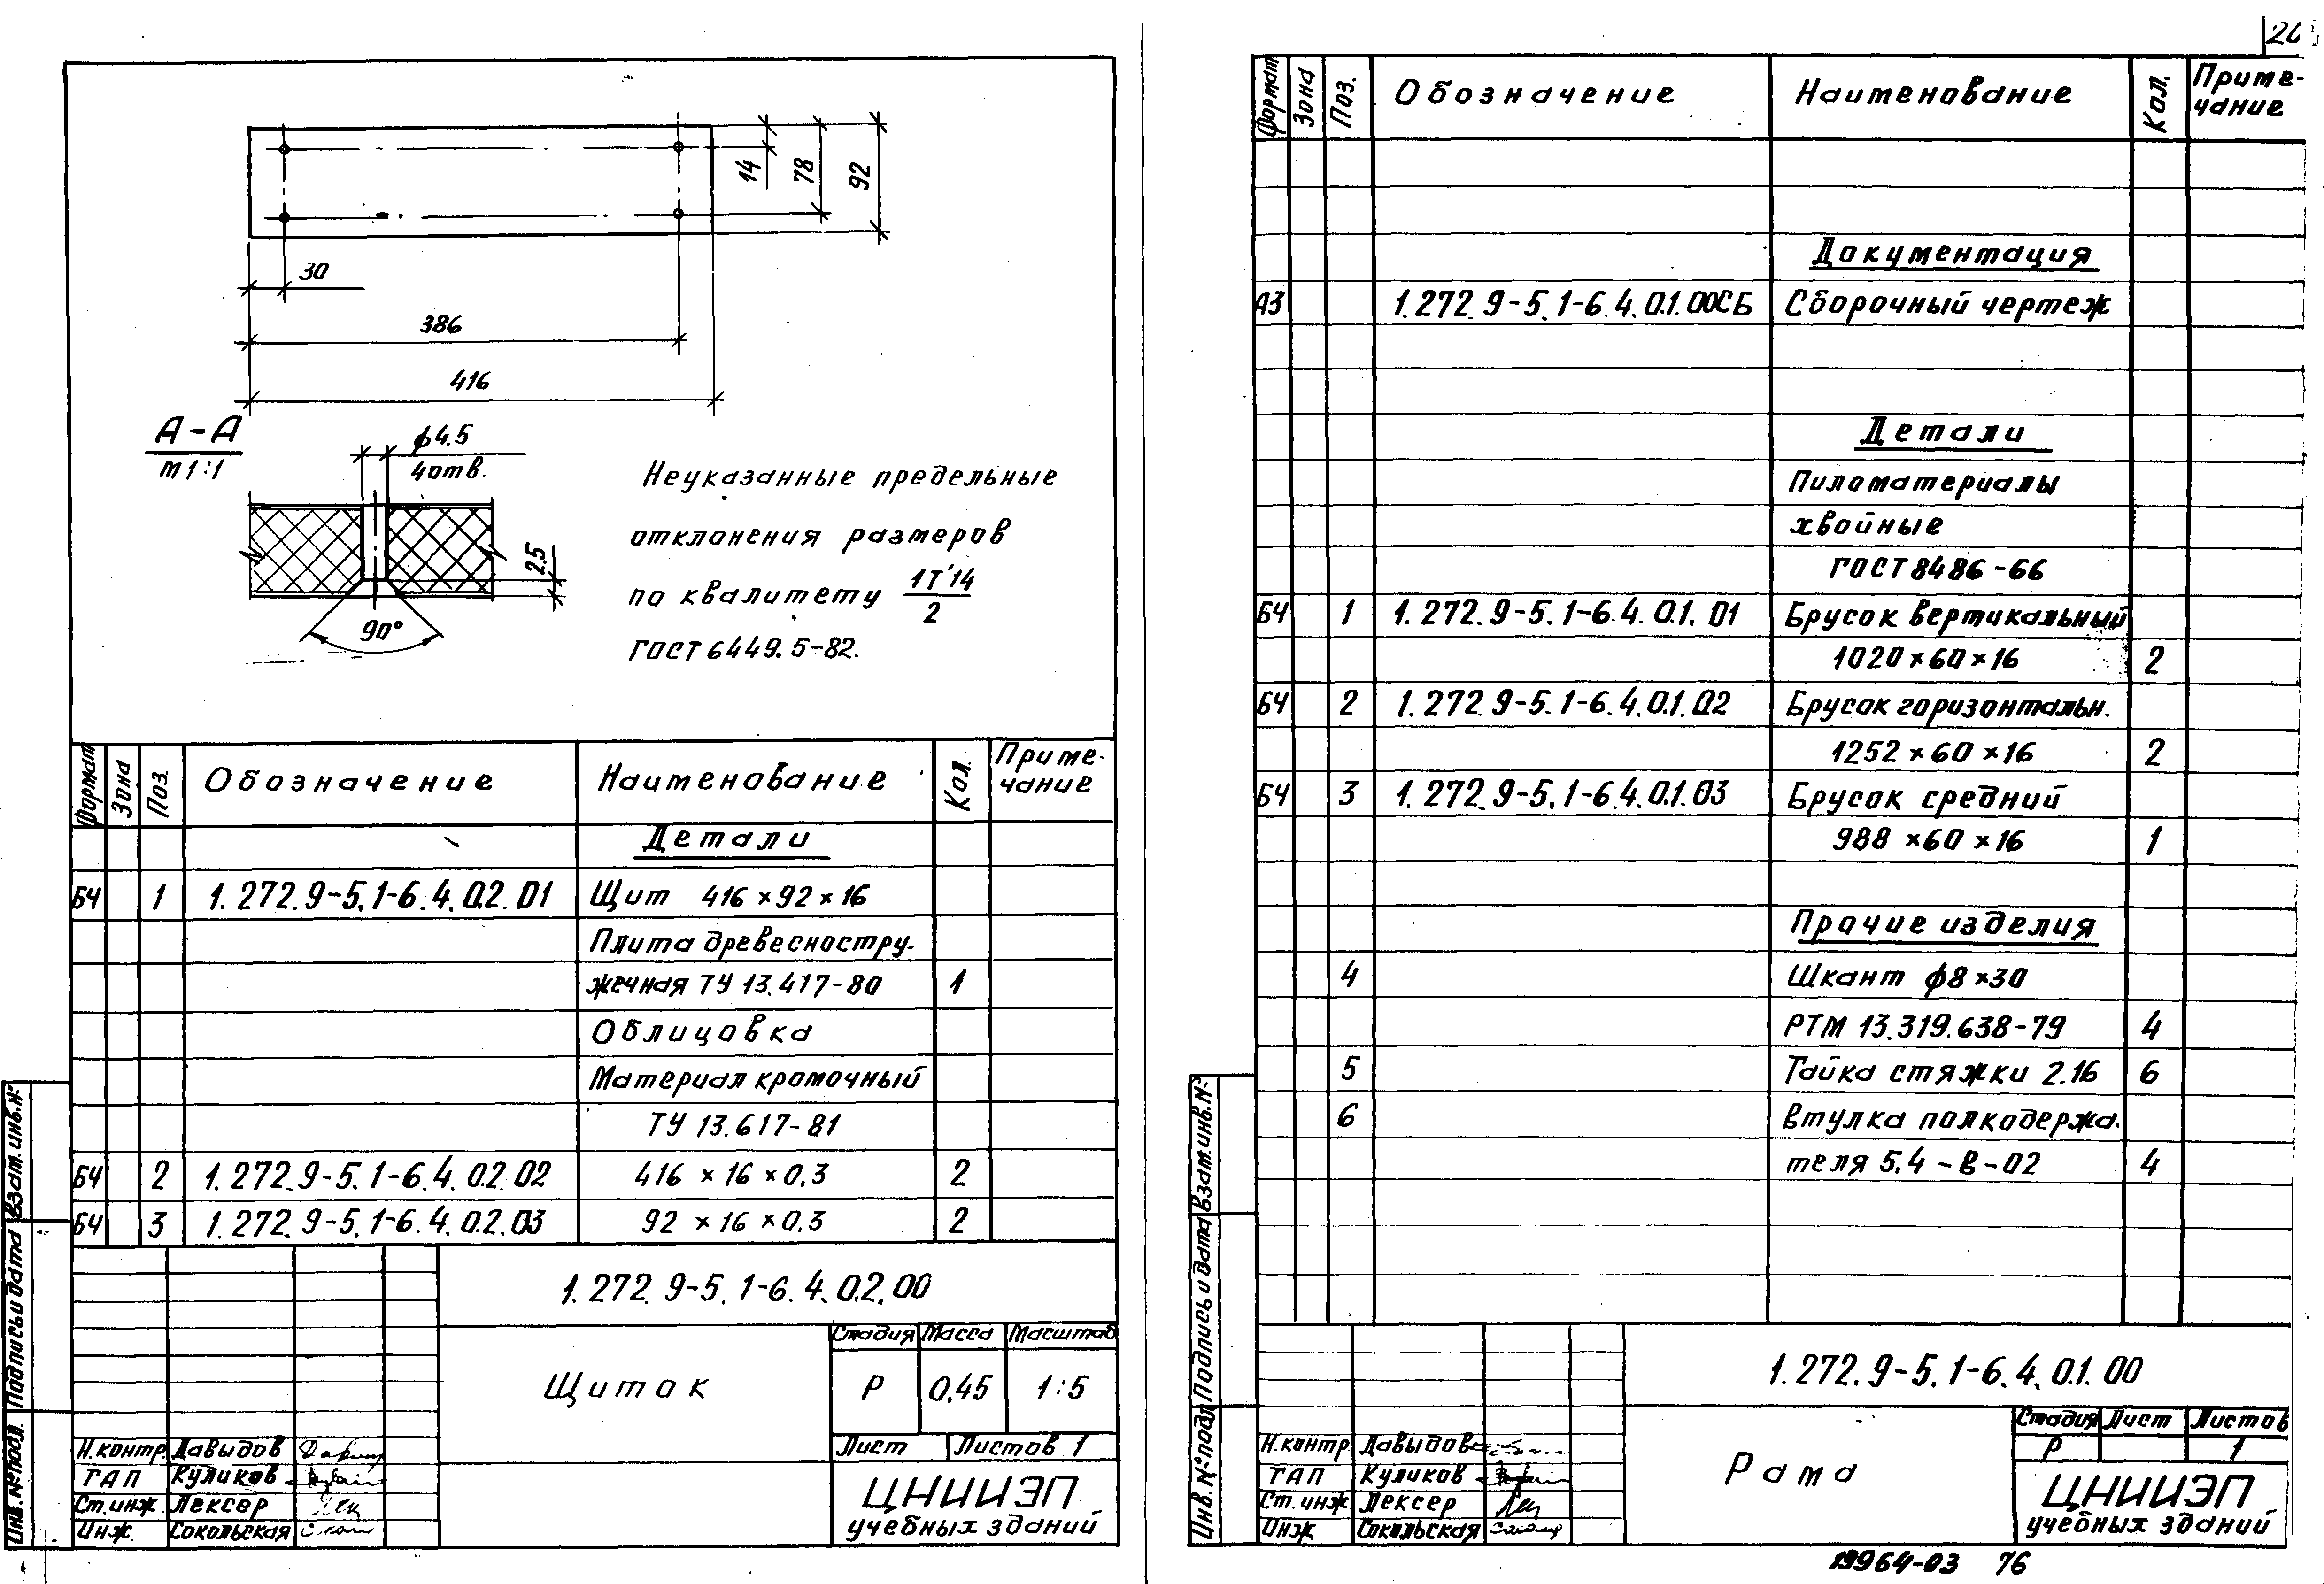 14
78
92
30
386
416
А-А
М 1:1
ф4,5
4 отв.
2,5
90°
Неуказанные предельные
отклонения размеров
по квалитету 1Т'14
2
ГОСТ 6449.5-82.
Формат Зона Поз. Обозначение Наименование Кол. Приме-
чание
Детали
БЧ 1 1.272.9-5.1-6.4.0.2.01 Щит 416×92×16
Плита древесностру-
жечная ТУ 13.417-80 1
Облицовка
Материал кромочный
ТУ 13.617-81
БЧ 2 1.272.9-5.1-6.4.0.2.02 416×16×0,3 2
БЧ 3 1.272.9-5.1-6.4.0.2.03 92×16×0,3 2
1.272.9-5.1-6.4.0.2.00
Щиток
Стадия Масса Масштаб
Р 0,45 1:5
Лист Листов 1
ЦНИИЭП
учебных зданий
Н.контр. Давыдов
ГАП Куликов
Ст.инж. Лексер
Инж. Сокольская
Взам.инв.№
Подпись и дата
Инв.№ подл.
Формат Зона Поз. Обозначение Наименование Кол. Приме-
чание
Документация
А3 1.272.9-5.1-6.4.0.1.00СБ Сборочный чертеж
Детали
Пиломатериалы
хвойные
ГОСТ 8486-66
БЧ 1 1.272.9-5.1-6.4.0.1.01 Брусок вертикальный
1020×60×16 2
БЧ 2 1.272.9-5.1-6.4.0.1.02 Брусок горизонтальн.
1252×60×16 2
БЧ 3 1.272.9-5.1-6.4.0.1.03 Брусок средний
988×60×16 1
Прочие изделия
4 Шкант ф8×30
РТМ 13.319.638-79 4
5 Гайка стяжки 2.16 6
6 Втулка полкодержа-
теля 5.4-В-02 4
1.272.9-5.1-6.4.0.1.00
Рама
Стадия Лист Листов
Р 1
ЦНИИЭП
учебных зданий
Н.контр. Давыдов
ГАП Куликов
Ст.инж Лексер
Инж Сокольская
Взам.инв.№
Подпись и дата
Инв.№ подл
19964-03 76